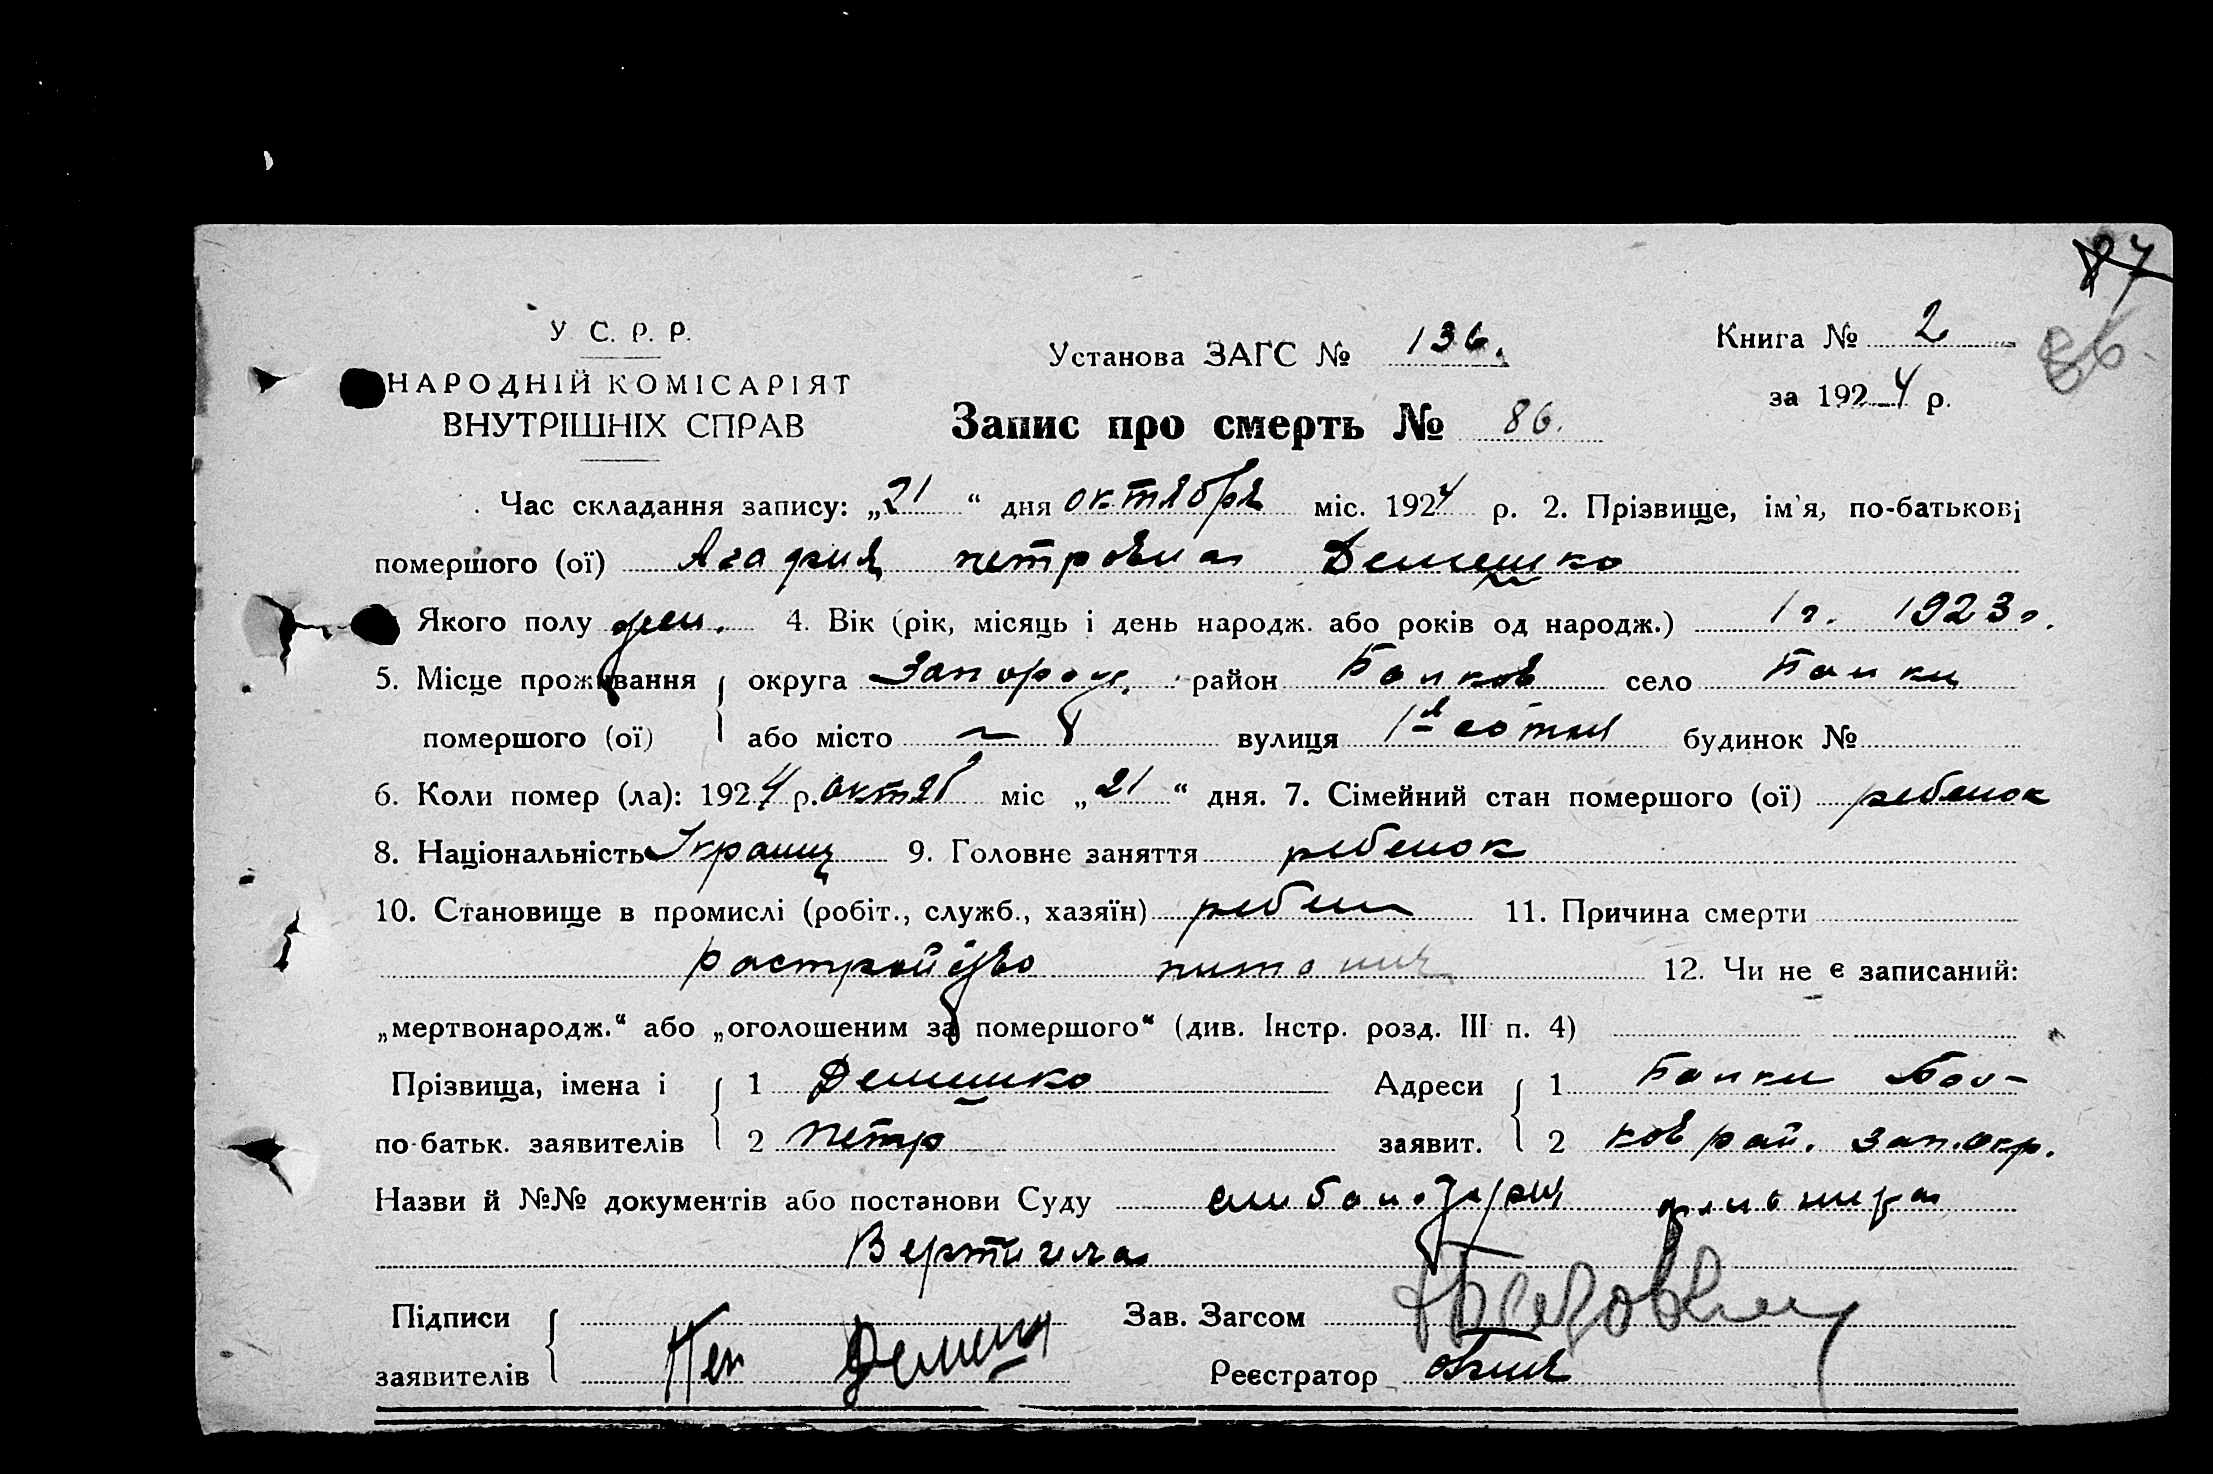 87
86
У С. Р. Р.
НАРОДНІЙ КОМІСАРІЯТ
ВНУТРІШНІХ СПРАВ
Установа ЗАГС № 136.
Книга № 2
за 1924 р.
Запис про смерть № 86.
Час складання запису: „21“ дня октября міс. 1924 р. 2. Прізвище, ім'я, по-батькові
помершого (ої) Агафия петровна Демешко
Якого полу жен. 4. Вік (рік, місяць і день народж. або років од народж.) 1 г. 1923 г.
5. Місце проживання округа Запорож. район Балков село Балки
помершого (ої) або місто вулиця 1я сотня будинок №
6. Коли помер (ла): 1924 р. октяб міс „21“ дня. 7. Сімейний стан помершого (ої) ребенок
8. Національність Украин 9. Головне заняття ребенок
10. Становище в промислі (робіт., служб., хазяїн) ребен 11. Причина смерти
растройство питания 12. Чи не є записаний:
„мертвонародж.“ або „оголошеним за помершого“ (див. Інстр. розд. III п. 4)
Прізвища, імена і 1 Демешко Адреси 1 Балки Бал-
по-батьк. заявителів 2 петр заявит. 2 ков рай. Зап. окр.
Назви й №№ документів або постанови Суду
Вертигела
Підписи
Зав. Загсом
заявителів Демеш
Реєстратор